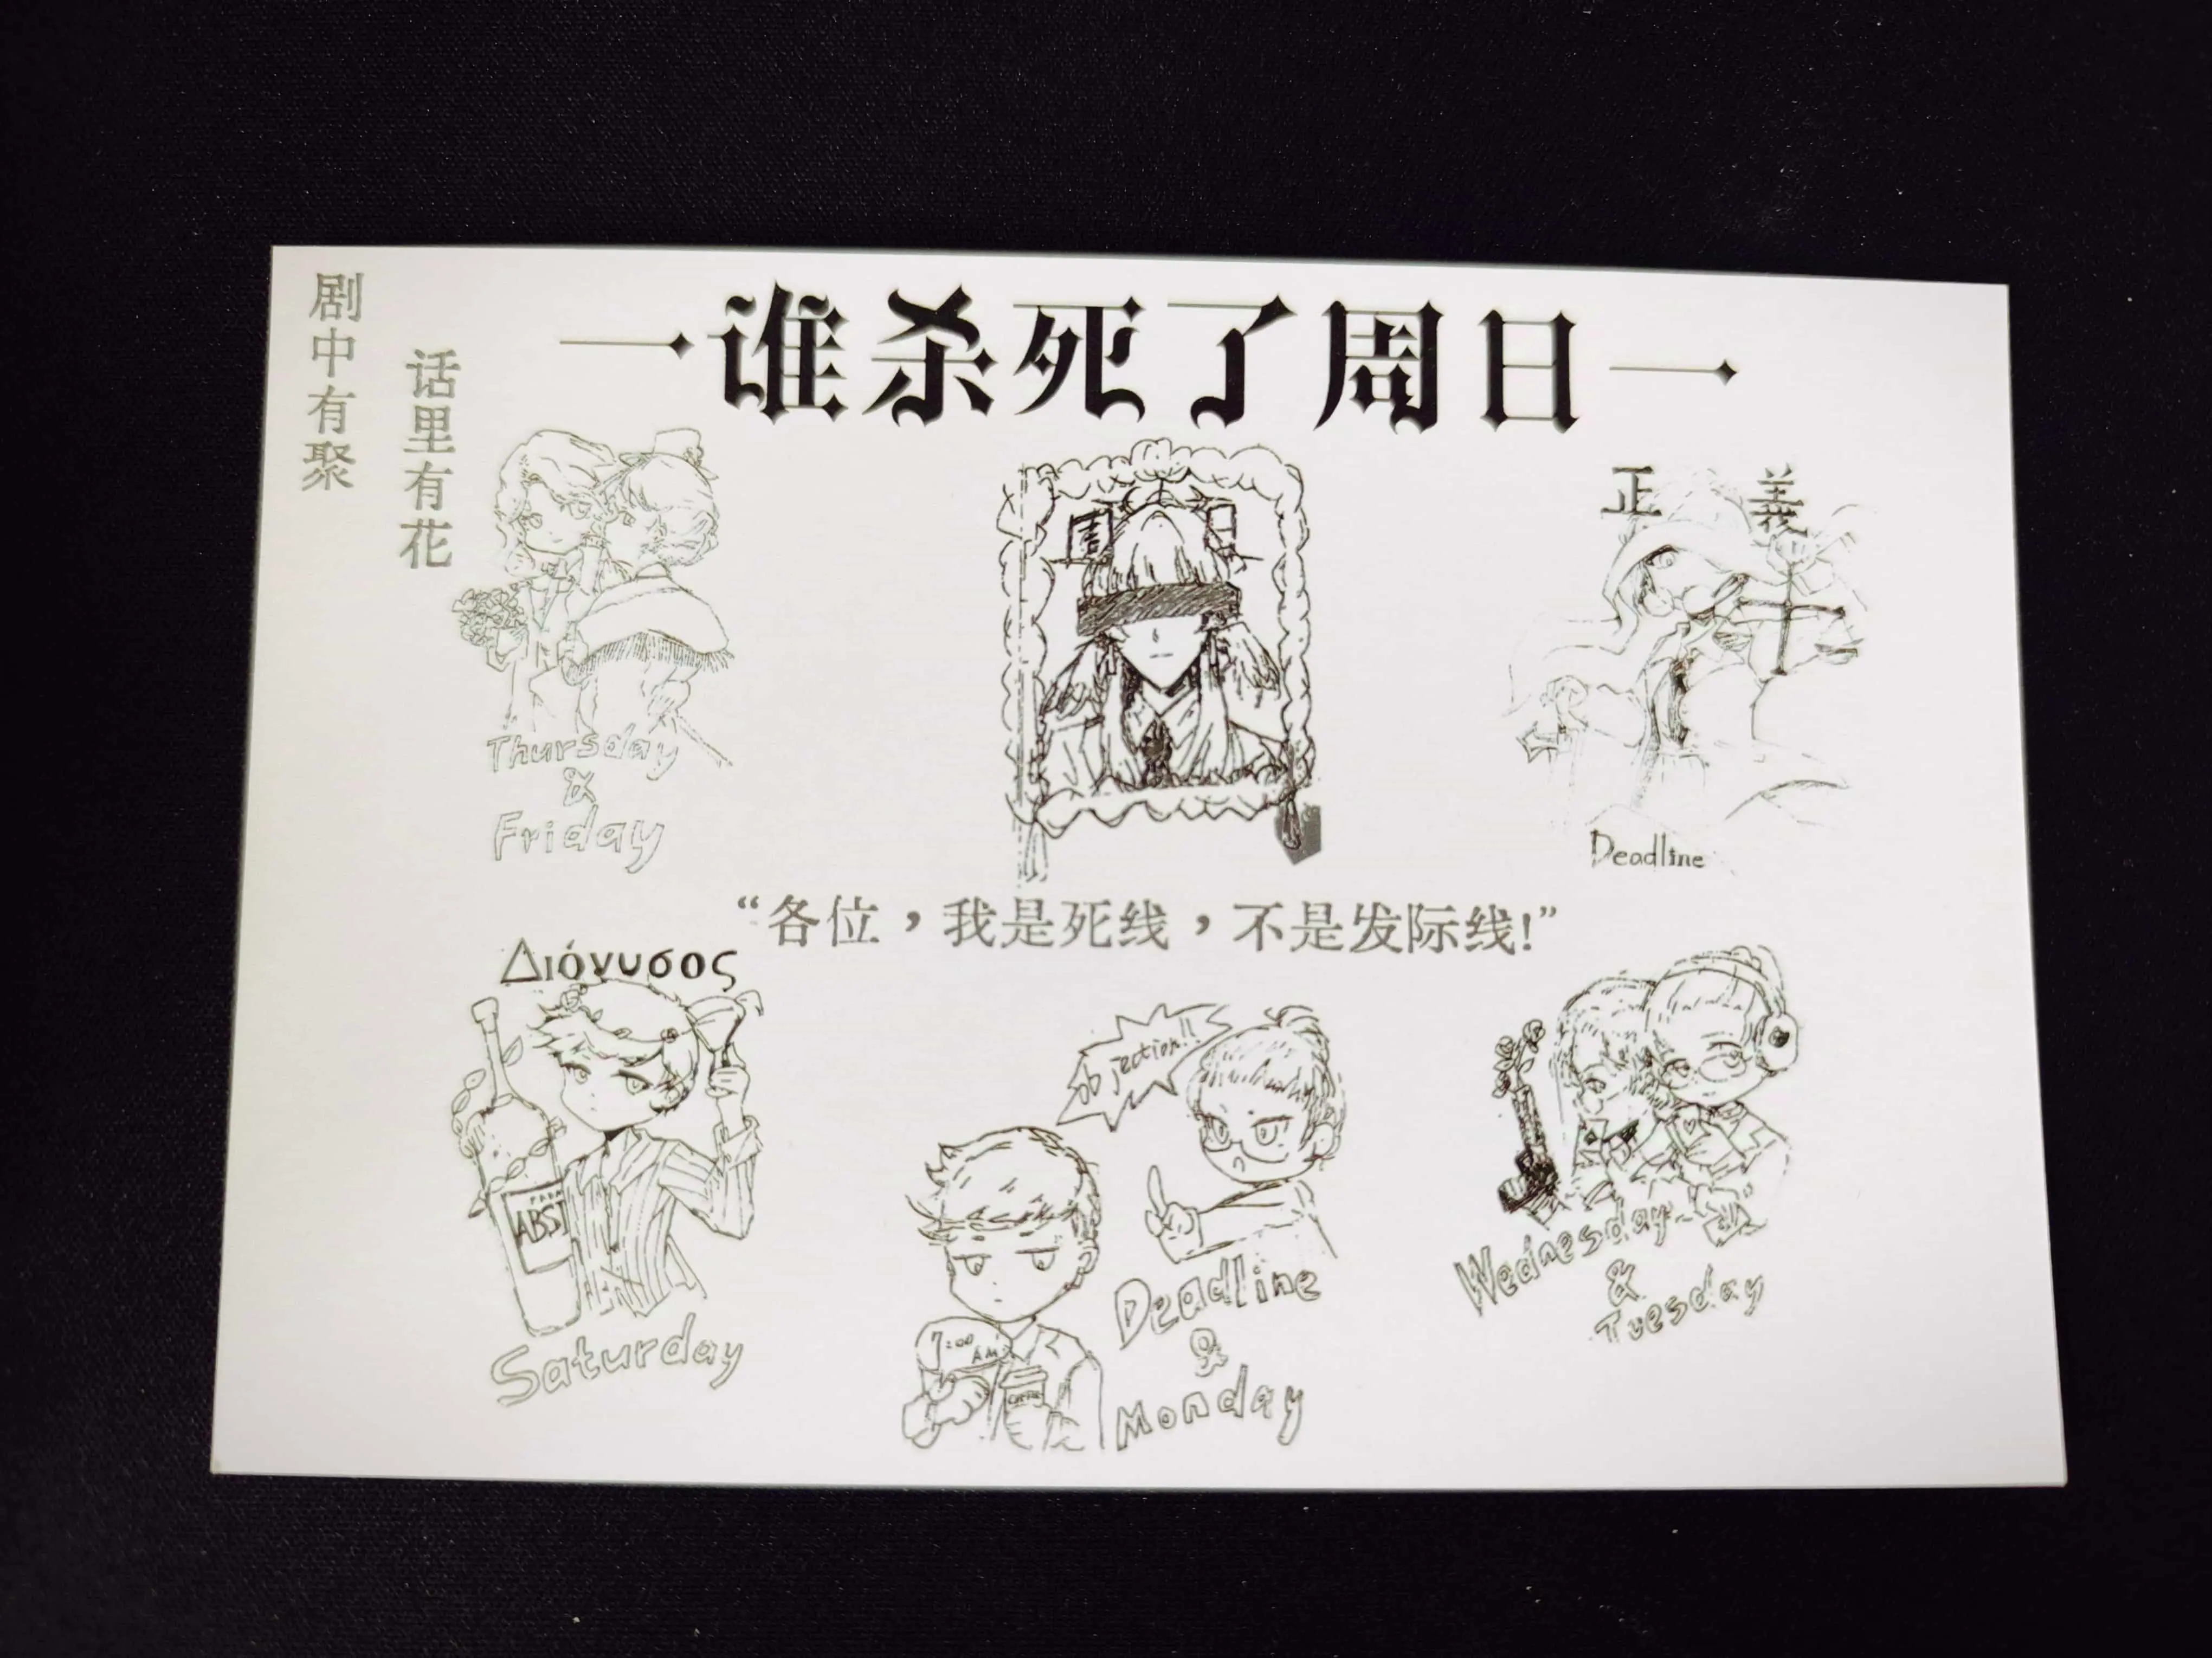 剧中有聚
话里有花
谁杀死了周日
周日
正義
Thursday
&
Friday
Deadline
“各位，我是死线，不是发际线!”
Διόνυσος
ABSI
Saturday
Objection!!
7:00
AM
Deadline
&
Monday
Wednesday
&
Tuesday